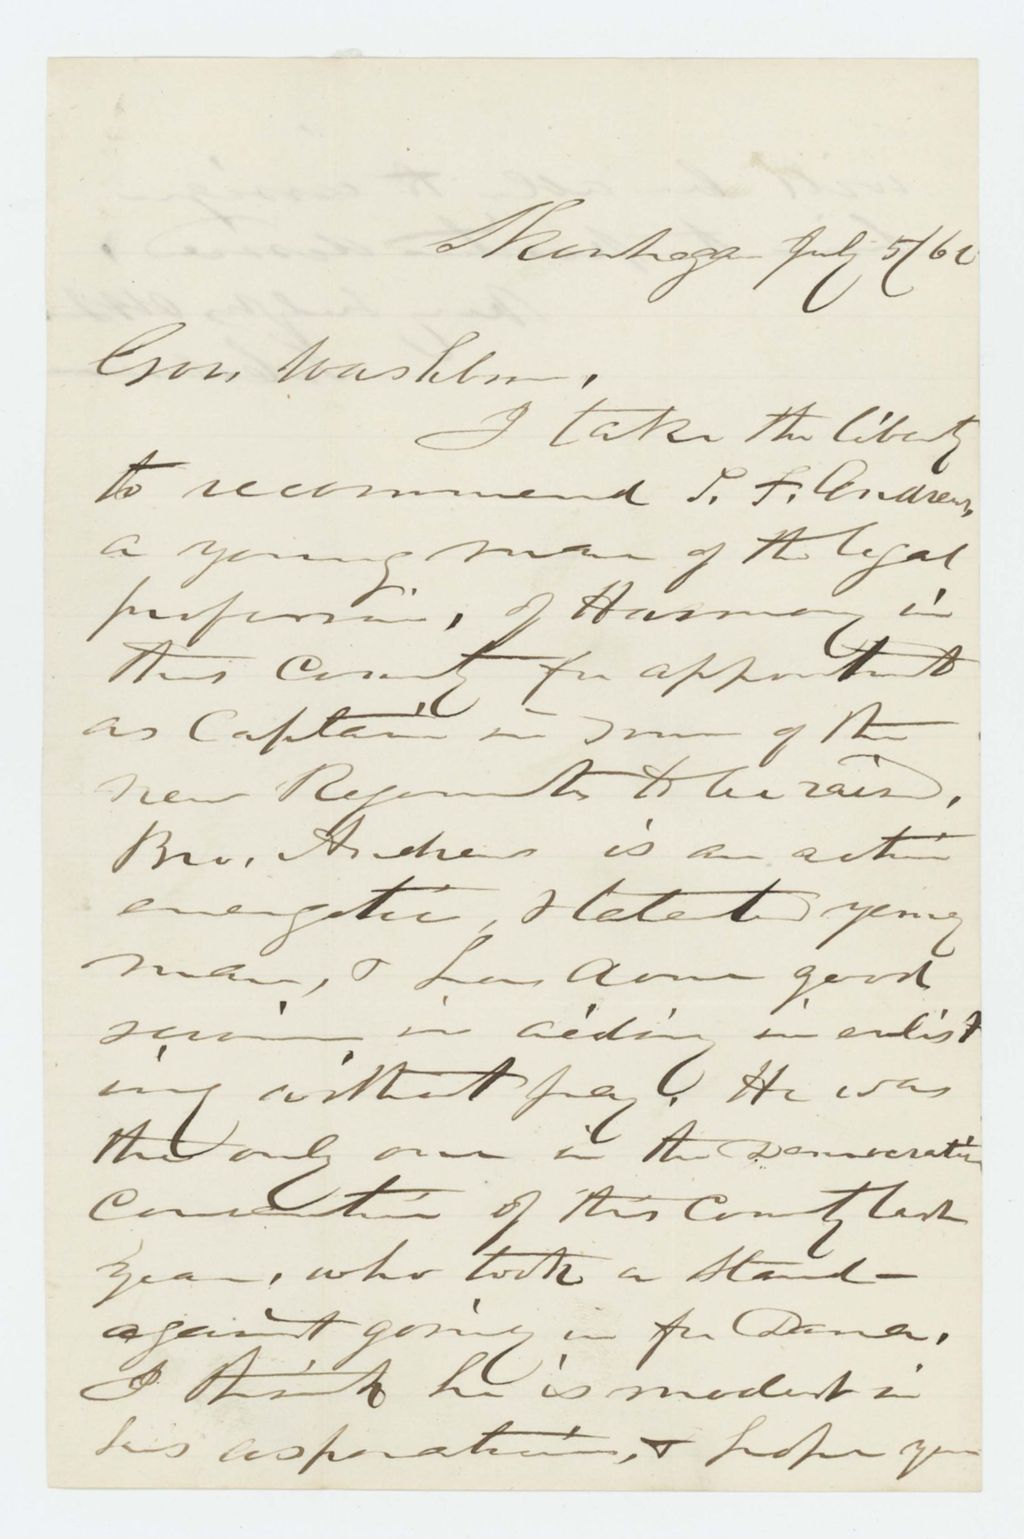 Skowhegan July 5/62
Gov. Washburn,
I take the liberty
to recommend S. F. Andrews,
a young man of the legal
profession, of Harmony in
this County for appointment
as Captain in some of the
new Regiments to be raised,
Bro. Andrews is an active
energetic, & talented young
man, & has done good
service in aiding in enlist
ing without pay. He was
the only one in the Democratic
Convention of this County last
year, who took a stand
against going in for Dana.
I think he is modest in
his asperations, & hope you